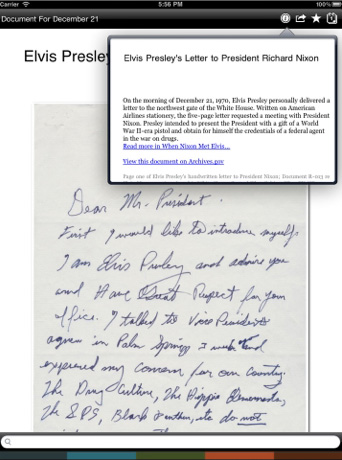 Carrier 5:56 PM 100%
Document For December 21
Elvis Presley
Elvis Presley's Letter to President Richard Nixon
On the morning of December 21, 1970, Elvis Presley personally delivered a
letter to the northwest gate of the White House. Written on American
Airlines stationery, the five-page letter requested a meeting with President
Nixon. Presley intended to present the President with a gift of a World
War II-era pistol and obtain for himself the credentials of a federal agent
in the war on drugs.
Read more in When Nixon Met Elvis...
View this document on Archives.gov
Page one of Elvis Presley's handwritten letter to President Nixon; Document
Dear Mr. President.
First I would like to introduce myself.
I am Elvis Presley and admire you
and Have Great Respect for your
office. I talked to Vice President
Agnew in Palm Springs
expressed my concern for our country.
The Drug Culture, The Hippie Elements,
The SDS, Black Panthers, etc do not